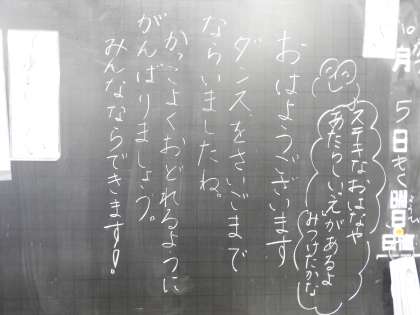 10月5日もく曜日
ステキなおはなや
あたらしいえがあるよ
みつけたかな
おはようございます
ダンスをさいごまで
ならいましたね。
かっこよくおどれるように
がんばりましょう。
みんなならできます!